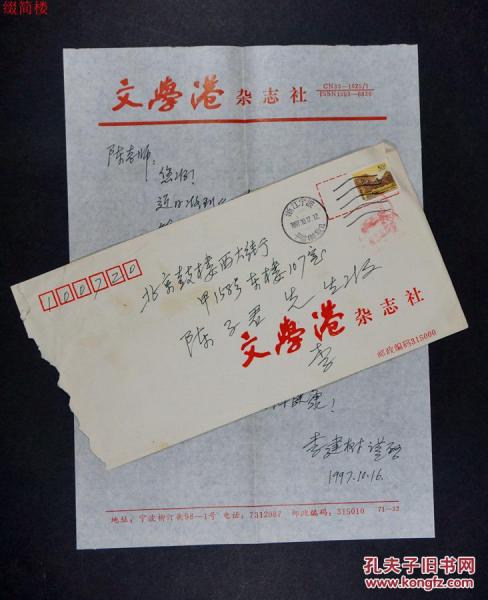 缀简楼
文學港 杂志社
CN33-1025/I
陈老师：
您好！
近日收到
浙江宁波
100720
北京鼓楼西大街
甲158号东楼107室
陈子君 先生收
文學港 杂志社
李
邮政编码315000
健康！
李建树 谨启
1997.10.16.
地址：宁波柳汀街98—1号 电话：7312087 邮政编码：315010 71—32
孔夫子旧书网
www.kongfz.com